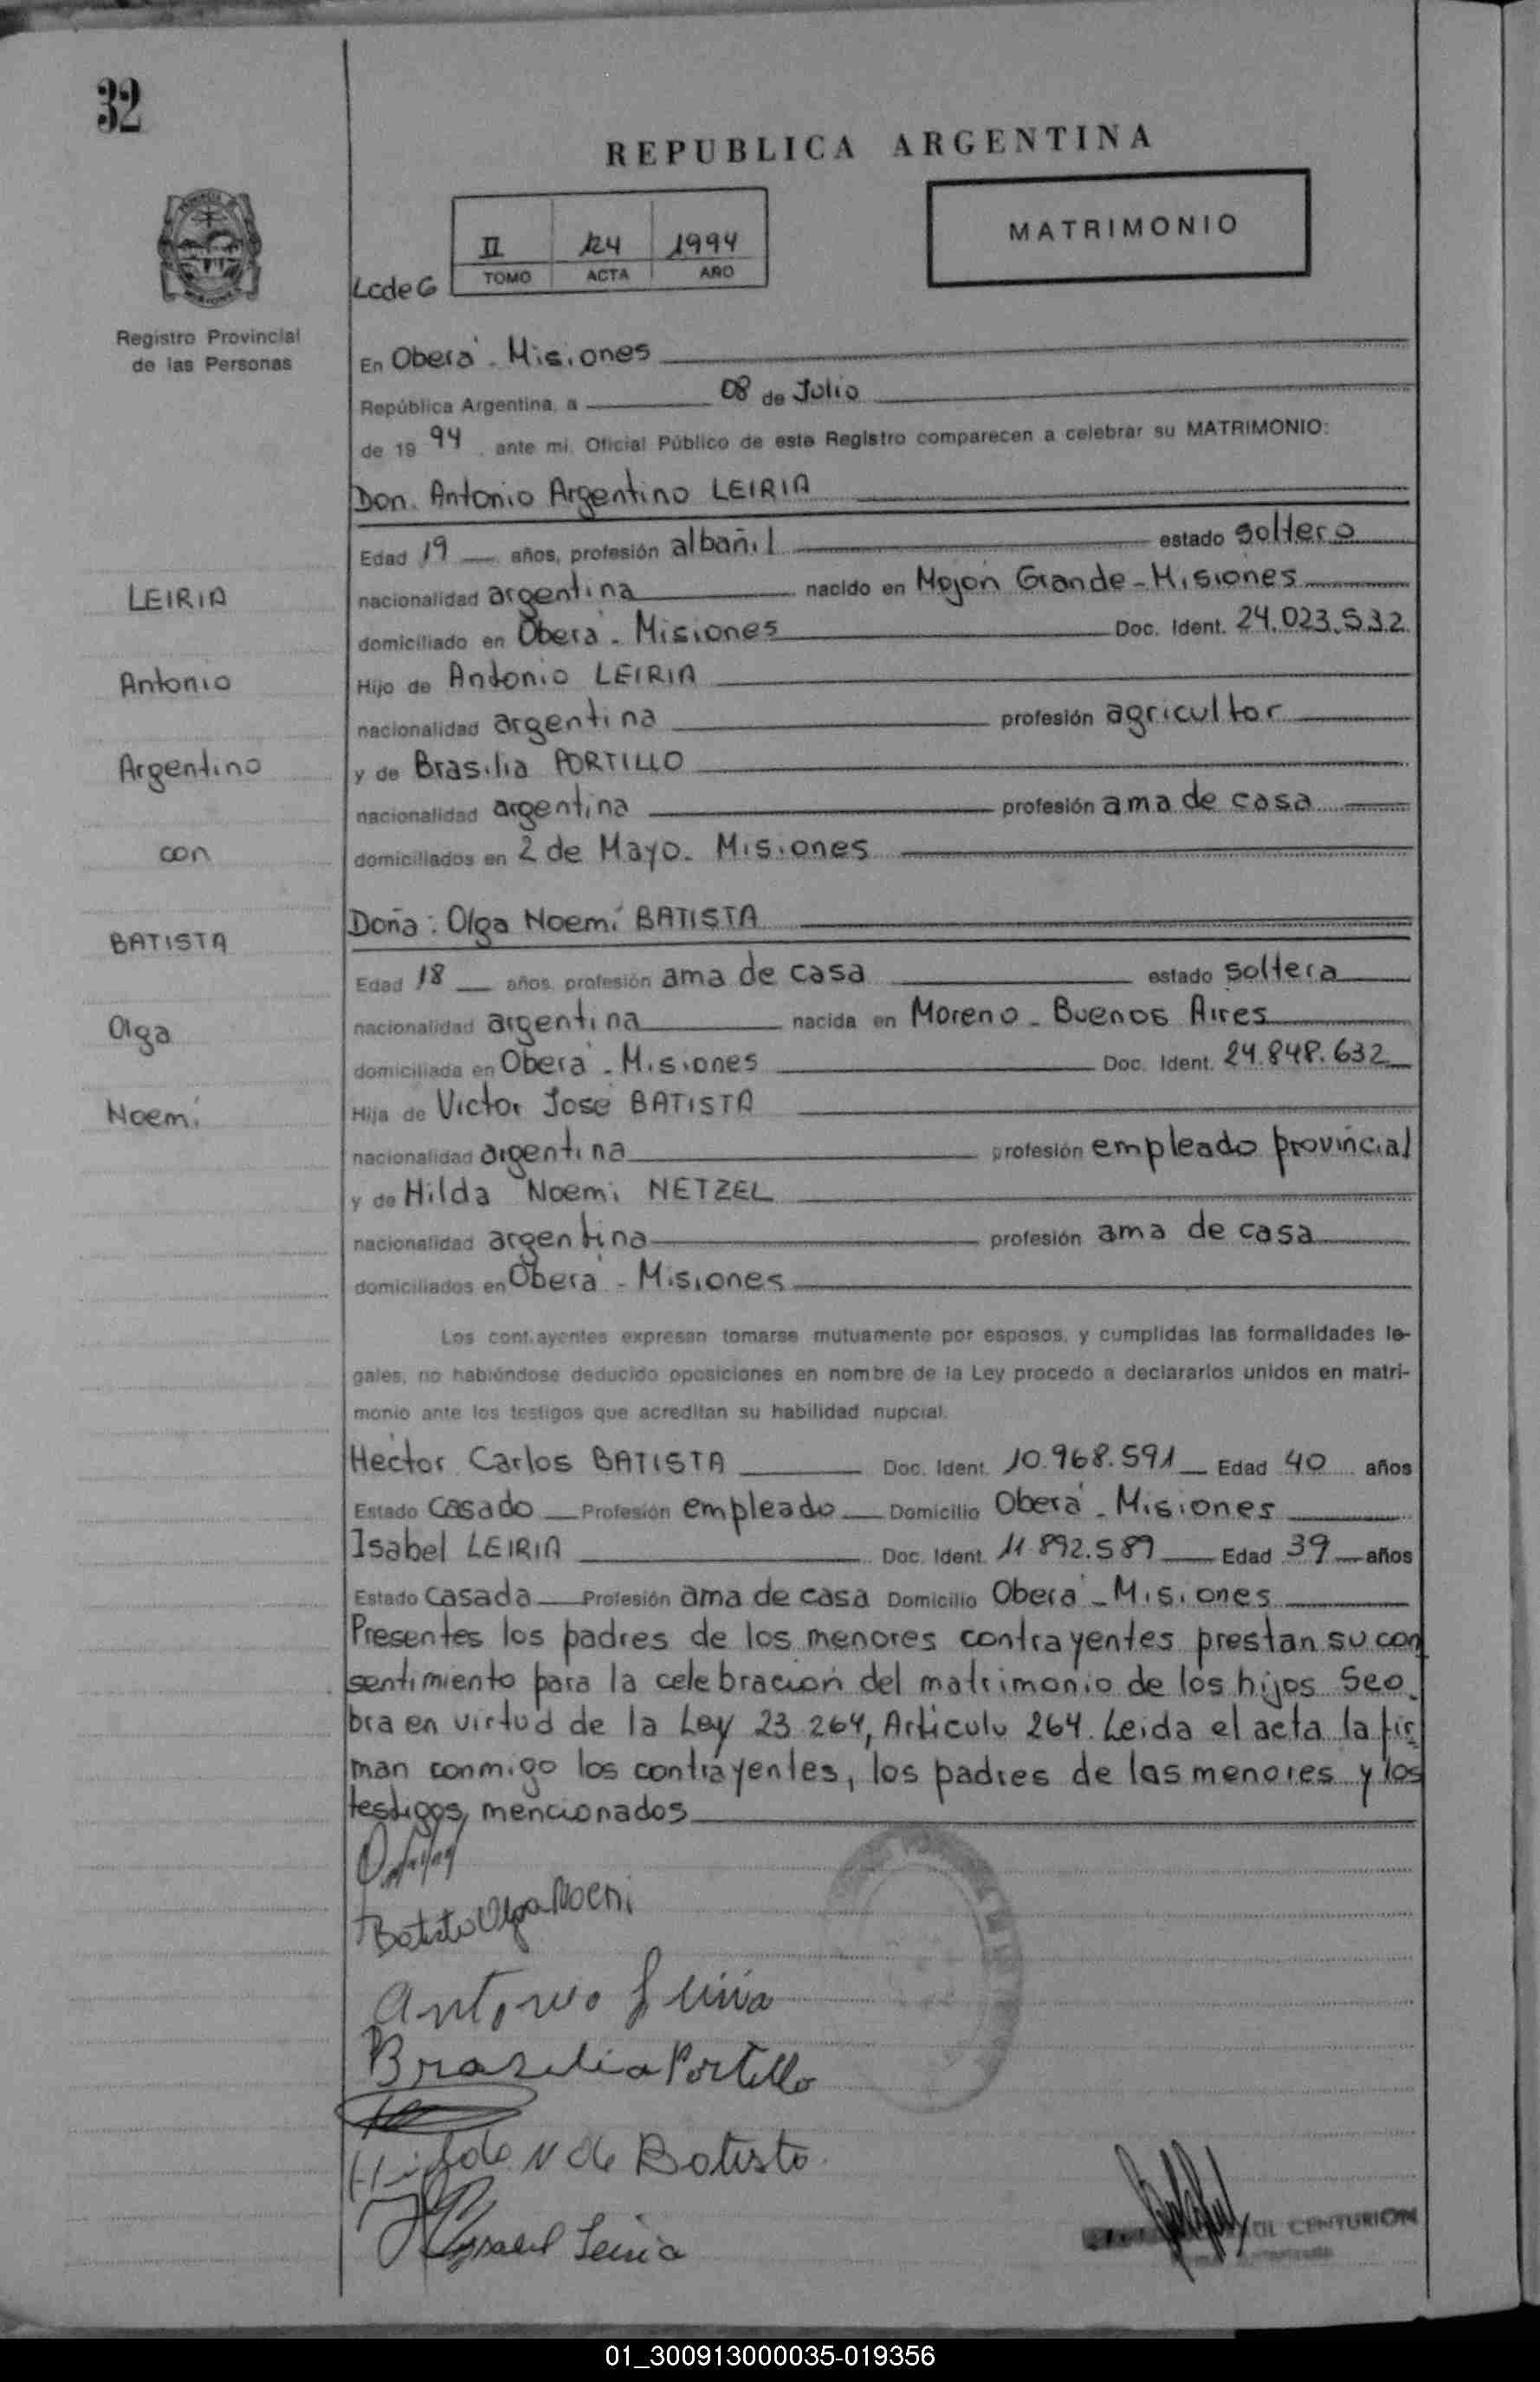 32
REPUBLICA ARGENTINA
II 124 1994
TOMO ACTA AÑO
MATRIMONIO
LcdeG
Registro Provincial
de las Personas
En Oberá - Misiones
República Argentina, a 08 de Julio
de 19 94, ante mi, Oficial Público de este Registro comparecen a celebrar su MATRIMONIO:
Don. Antonio Argentino LEIRIA
Edad 19 años, profesión albañil estado soltero
LEIRIA
nacionalidad argentina nacido en Mojón Grande - Misiones
domiciliado en Oberá - Misiones Doc. Ident. 24.023.532
Antonio
Hijo de Antonio LEIRIA
nacionalidad argentina profesión agricultor
Argentino
y de Brasilia PORTILLO
nacionalidad argentina profesión ama de casa
con
domiciliados en 2 de Mayo. Misiones
BATISTA
Doña: Olga Noemí BATISTA
Edad 18 años, profesión ama de casa estado soltera
Olga
nacionalidad argentina nacida en Moreno - Buenos Aires
domiciliada en Oberá - Misiones Doc. Ident. 24.848.632
Noemí
Hija de Victor José BATISTA
nacionalidad argentina profesión empleado provincial
y de Hilda Noemi NETZEL
nacionalidad argentina profesión ama de casa
domiciliados en Oberá - Misiones
Los contrayentes expresan tomarse mutuamente por esposos, y cumplidas las formalidades le-
gales, no habiéndose deducido oposiciones en nombre de la Ley procedo a declararlos unidos en matri-
monio ante los testigos que acreditan su habilidad nupcial.
Héctor Carlos BATISTA Doc. Ident. 10.968.591 Edad 40 años
Estado casado Profesión empleado Domicilio Oberá - Misiones
Isabel LEIRIA Doc. Ident. 11.892.589 Edad 39 años
Estado casada Profesión ama de casa Domicilio Oberá - Misiones
Presentes los padres de los menores contrayentes prestan su con
sentimiento para la celebración del matrimonio de los hijos Seo
bra en virtud de la Ley 23.264, Artículo 264. Leida el acta la fir
man conmigo los contrayentes, los padres de los menores y los
testigos mencionados
Batista Olga Noemi
Antonio Leiria
Brasilia Portillo
Hilda N de Batista
Isabel Leiria
CENTURION
01_300913000035-019356